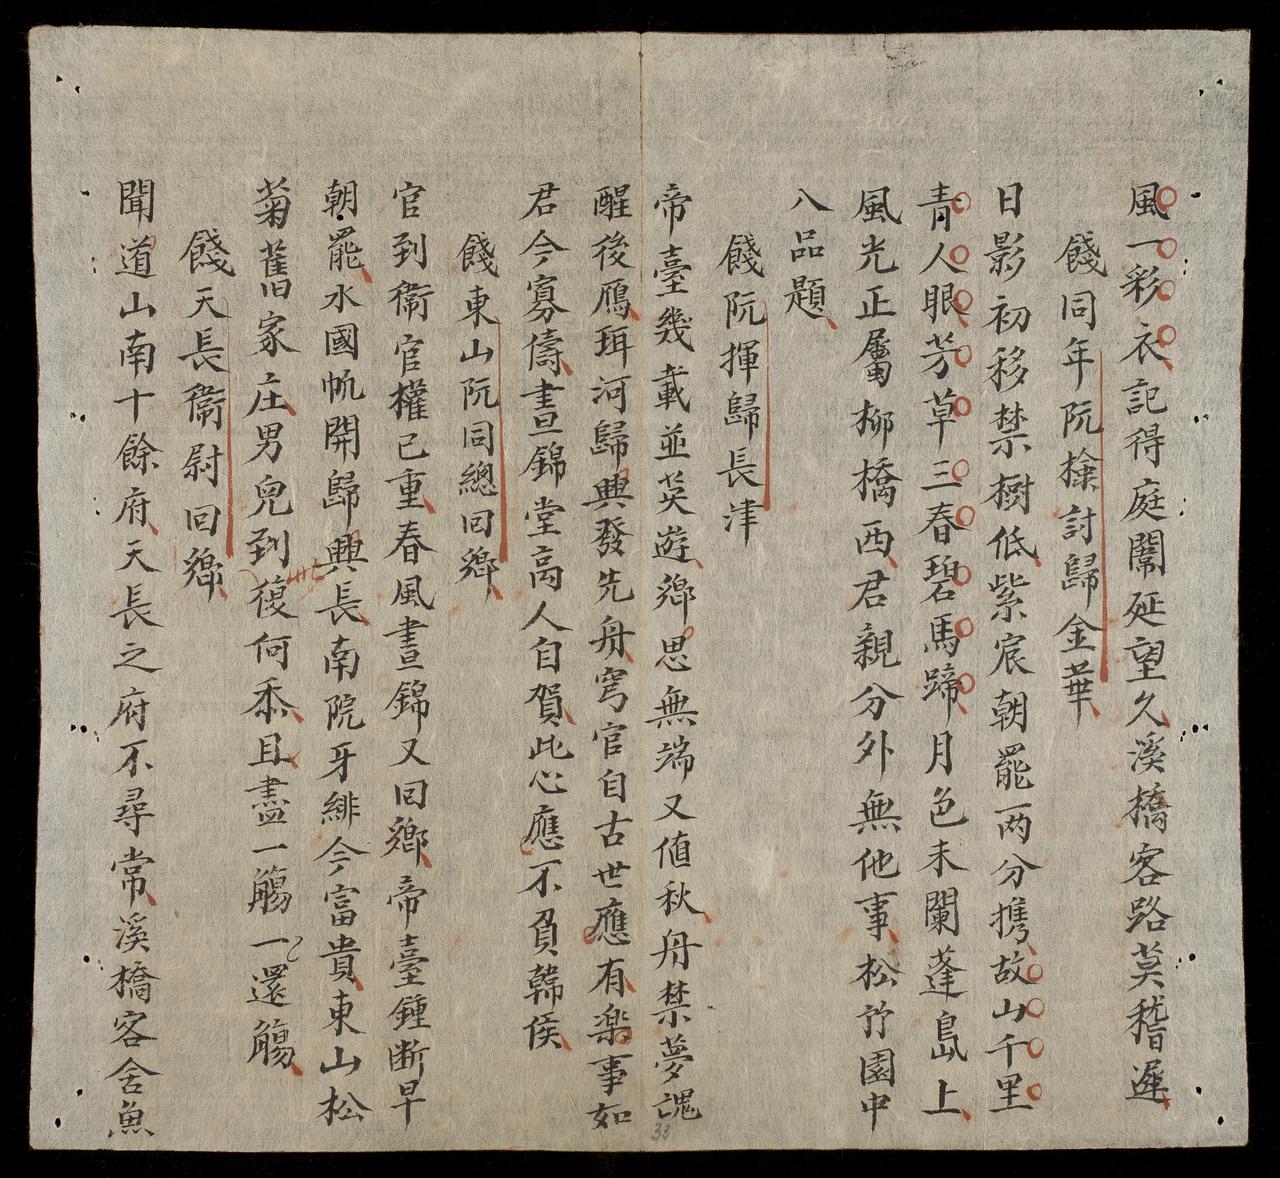 風一彩衣記得庭闈延望久溪橋客路莫稽遲
餞同年阮檢討歸金華
日影初移禁樹低紫宸朝罷两分携故山千里
青人眼芳草三春碧馬蹄月色未闌蓬島上
風光正屬柳橋西君親分外無他事松竹園中
八品題
餞阮揮歸長津
帝臺幾載並英遊鄉思無端又值秋丹禁夢魂
醒後鴈珥河歸興發先舟窮官自古世應有樂事如
君今寡儔晝錦堂高人自賀此心應不負韓侯
餞東山阮同總回鄉
官到衞官權已重春風晝錦又回鄉帝臺鍾断早
朝罷水國帆開歸興長南院牙緋今富貴東山松
菊舊家庄男兒到復何忝且盡一觴一還觴
餞天長衞尉回鄉
聞道山南十餘府天長之府不尋常溪橋客舍魚
33